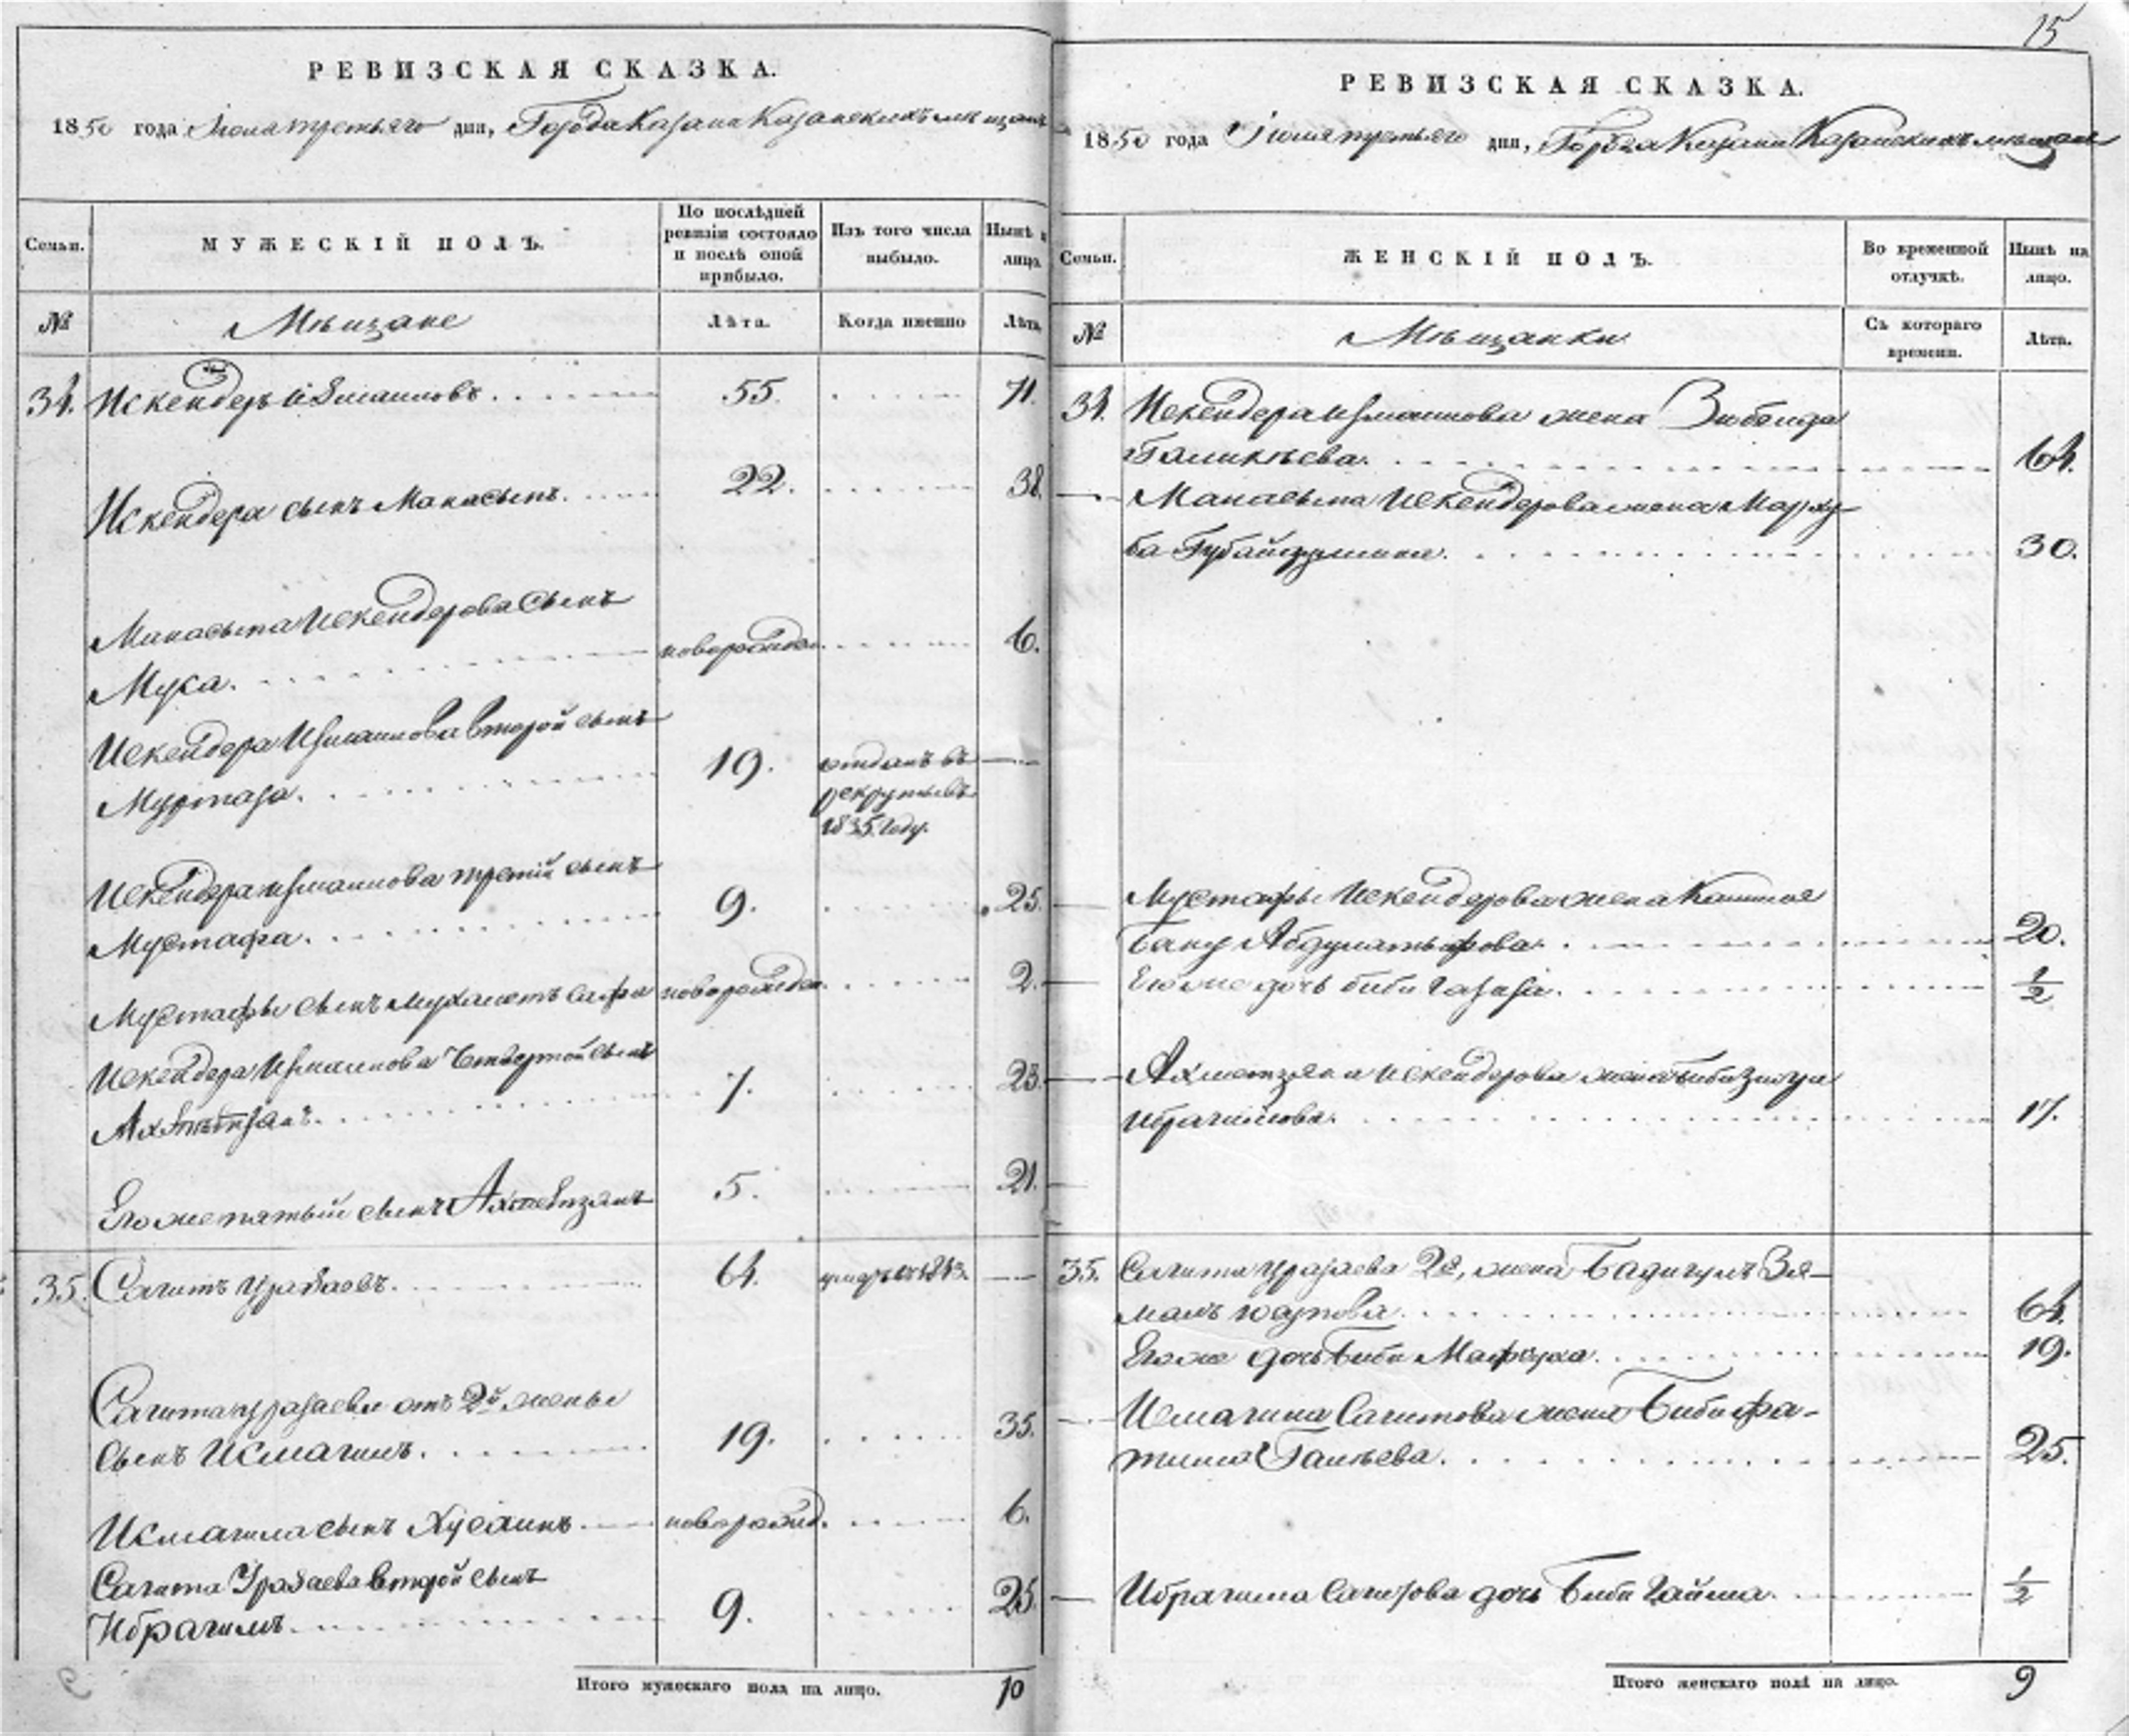 15
РЕВИЗСКАЯ СКАЗКА.
1850 года Июля третьяго дня, Города Казани Казанскихъ мѣщанъ
Семьи.
МУЖЕСКІЙ ПОЛЪ.
По послѣдней ревизіи состояло и послѣ оной прибыло.
Изъ того числа выбыло.
Нынѣ на лицо.
№
Мѣщане
Лѣта.
Когда именно
Лѣта.
34. Искендеръ Измаиловъ. 55. 71.
Искендера сынъ Манасыпъ. 22. 38.
Манасыпа Искендерова сынъ
Муса. новорожден. 6.
Искендера Измаилова второй сынъ
Муртаза. 19. отданъ въ
рекруты въ
1835 году.
Искендера Измаилова третій сынъ
Мустафа. 9. 25.
Мустафы сынъ Мухаметъ Сафа новорожден. 2.
Искендера Измаилова Четвертой сынъ
7. 23.
Его же пятый сынъ 5. 21.
35. Сагитъ Уразаевъ. 64. умеръ въ 1843.
Сагита Уразаева отъ 2й жены
сынъ Исмагилъ. 19. 35.
Исмагила сынъ Хусаинъ. новорожд. 6.
Сагита Уразаева второй сынъ
Ибрагимъ. 9. 25.
Итого мужескаго пола на лицо. 10
РЕВИЗСКАЯ СКАЗКА.
1850 года Июля третьяго дня, Города Казани Казанскихъ мѣщанъ
Семьи.
ЖЕНСКІЙ ПОЛЪ.
Во временной отлучкѣ.
Нынѣ на лицо.
№
Мѣщанки
Съ котораго времени.
Лѣта.
34. Искендера Измаилова жена
64.
Манасыпа Искендерова жена Марху-
ба Губайдуллина. 30.
Мустафы Искендерова жена
Бану Абдулатыфова. 20.
Его же дочь Биби Газиза. 1/2
Ахметзяна Искендерова жена
Ибрагимова. 17.
35. Сагита Уразаева 2я, жена Бадигулъ Зя-
малъ 64.
Его же дочь Биби Мафруха. 19.
Исмагила Сагитова жена Биби Фа-
тима 25.
Ибрагима Сагитова дочь Биби Гайша. 1/2
Итого женскаго пола на лицо. 9